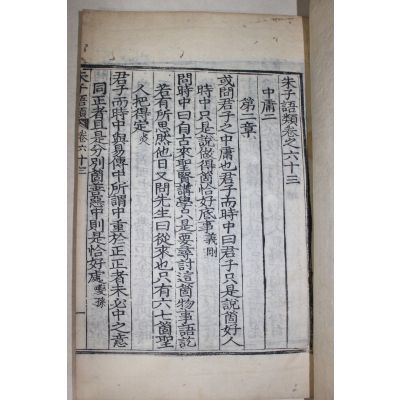 朱子語類卷之六十三
中庸二
第二章
或問君子之中庸也君子而時中曰君子只是說箇好人
時中只是說做得箇恰好底事義剛
問時中曰自古來聖賢講學只是要尋討這箇物事語訖
若有所思然他日又問先生曰從來也只有六七箇聖
人把得定炎
君子而時中與易傳中所謂中重於正正者未必中之意
同正者且是分別箇善惡中則是恰好處夔孫
朱子語類 卷六十三
一